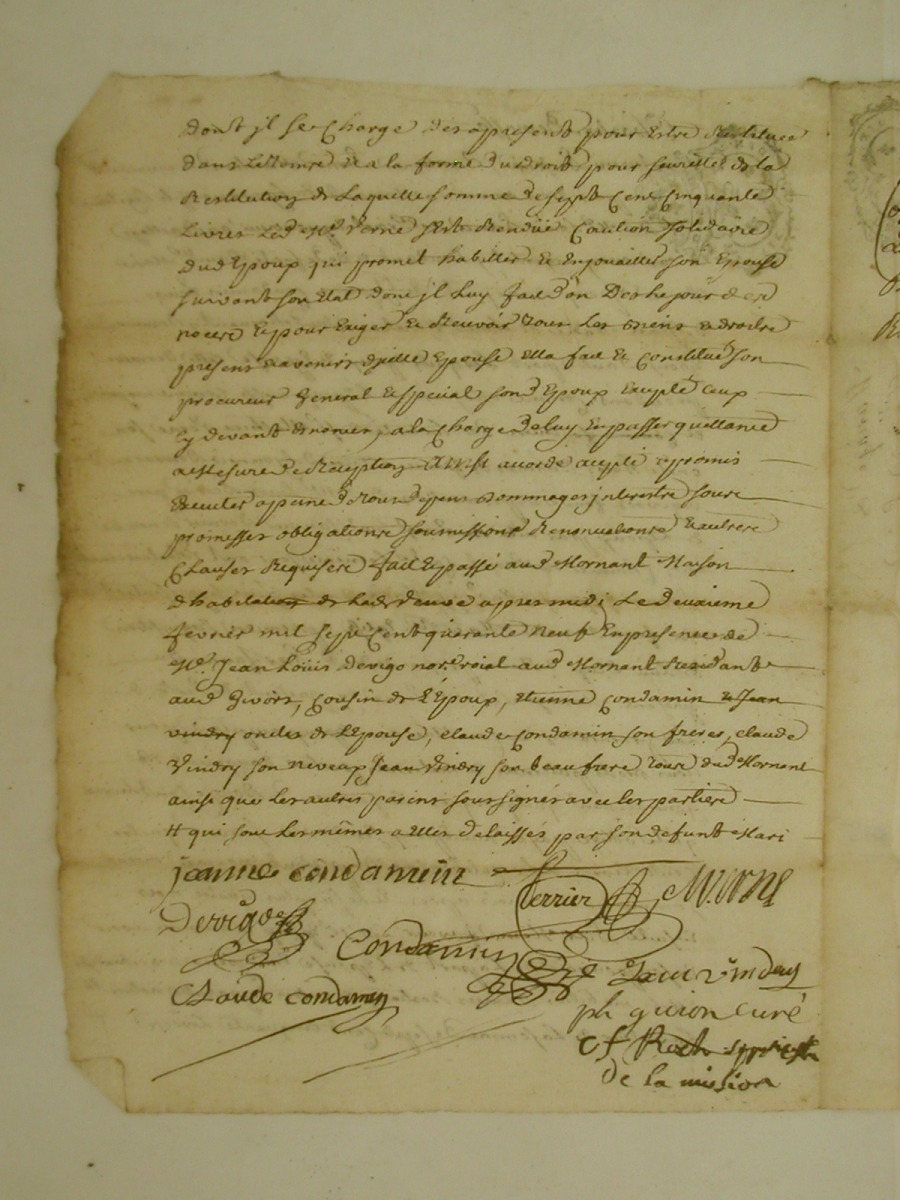 dont jl se Charge des apresent pour Estre Restituee
dans L'Estre et a la forme du droit pour seureté de la
Restitution de Laquelle somme de sept Cent Cinquante
Livres Led Mr Verne s'est Rendue Caution solidaire
dud Epoux qui promet habiller et Enjouailler son Epouse
suivant son Etat dont jl luy fait don Des he jour de
nocere et pour Exiger et Recevoir Tous Les Biens et droitre
presens et avenirs d'jcelle Epouse Ella fait et Constitué son
procureur General et special sond Epoux Excepté Ceux
Cy devant Enoncer, a la Charge de luy En passer quittance
a Mesure de Reception Ainsi acordé accepté et promis
Executer a peine de Tous depens Dommages jnterestre soure
promesses obligationre soumissionre Renonciationre Et autrere
Clauses Requisere fait Et passé aud Mornant Maison
d'habitation de Lade veuve apres midi Le deuxieme
fevrier mil sept Cent quarante neuf En presence de
Me Jean Loüis devigo nore roial aud Mornant Residant
aud Givors, Cousin de L'Epoux, Etienne Condamin et Jean
vindry oncles de L'Epouse, claude Condamin son frere, claude
Vindry son neveux Jean Vindry son beau frere Tous dud Mornant
ainsi que Les autres parens soussignés avec les partiere
H qui sont Les mêmes a Elles delaissés par son defunt Mari
jeanne condamein ferrier M. verne
Devigo
Condamin
Jean vindry
Claude condamin
ph guion curé
cf Roch pretre
de la mission